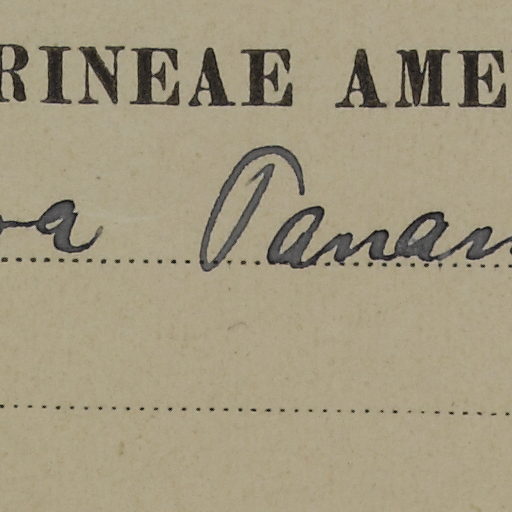 RINEAE AME
a Panam